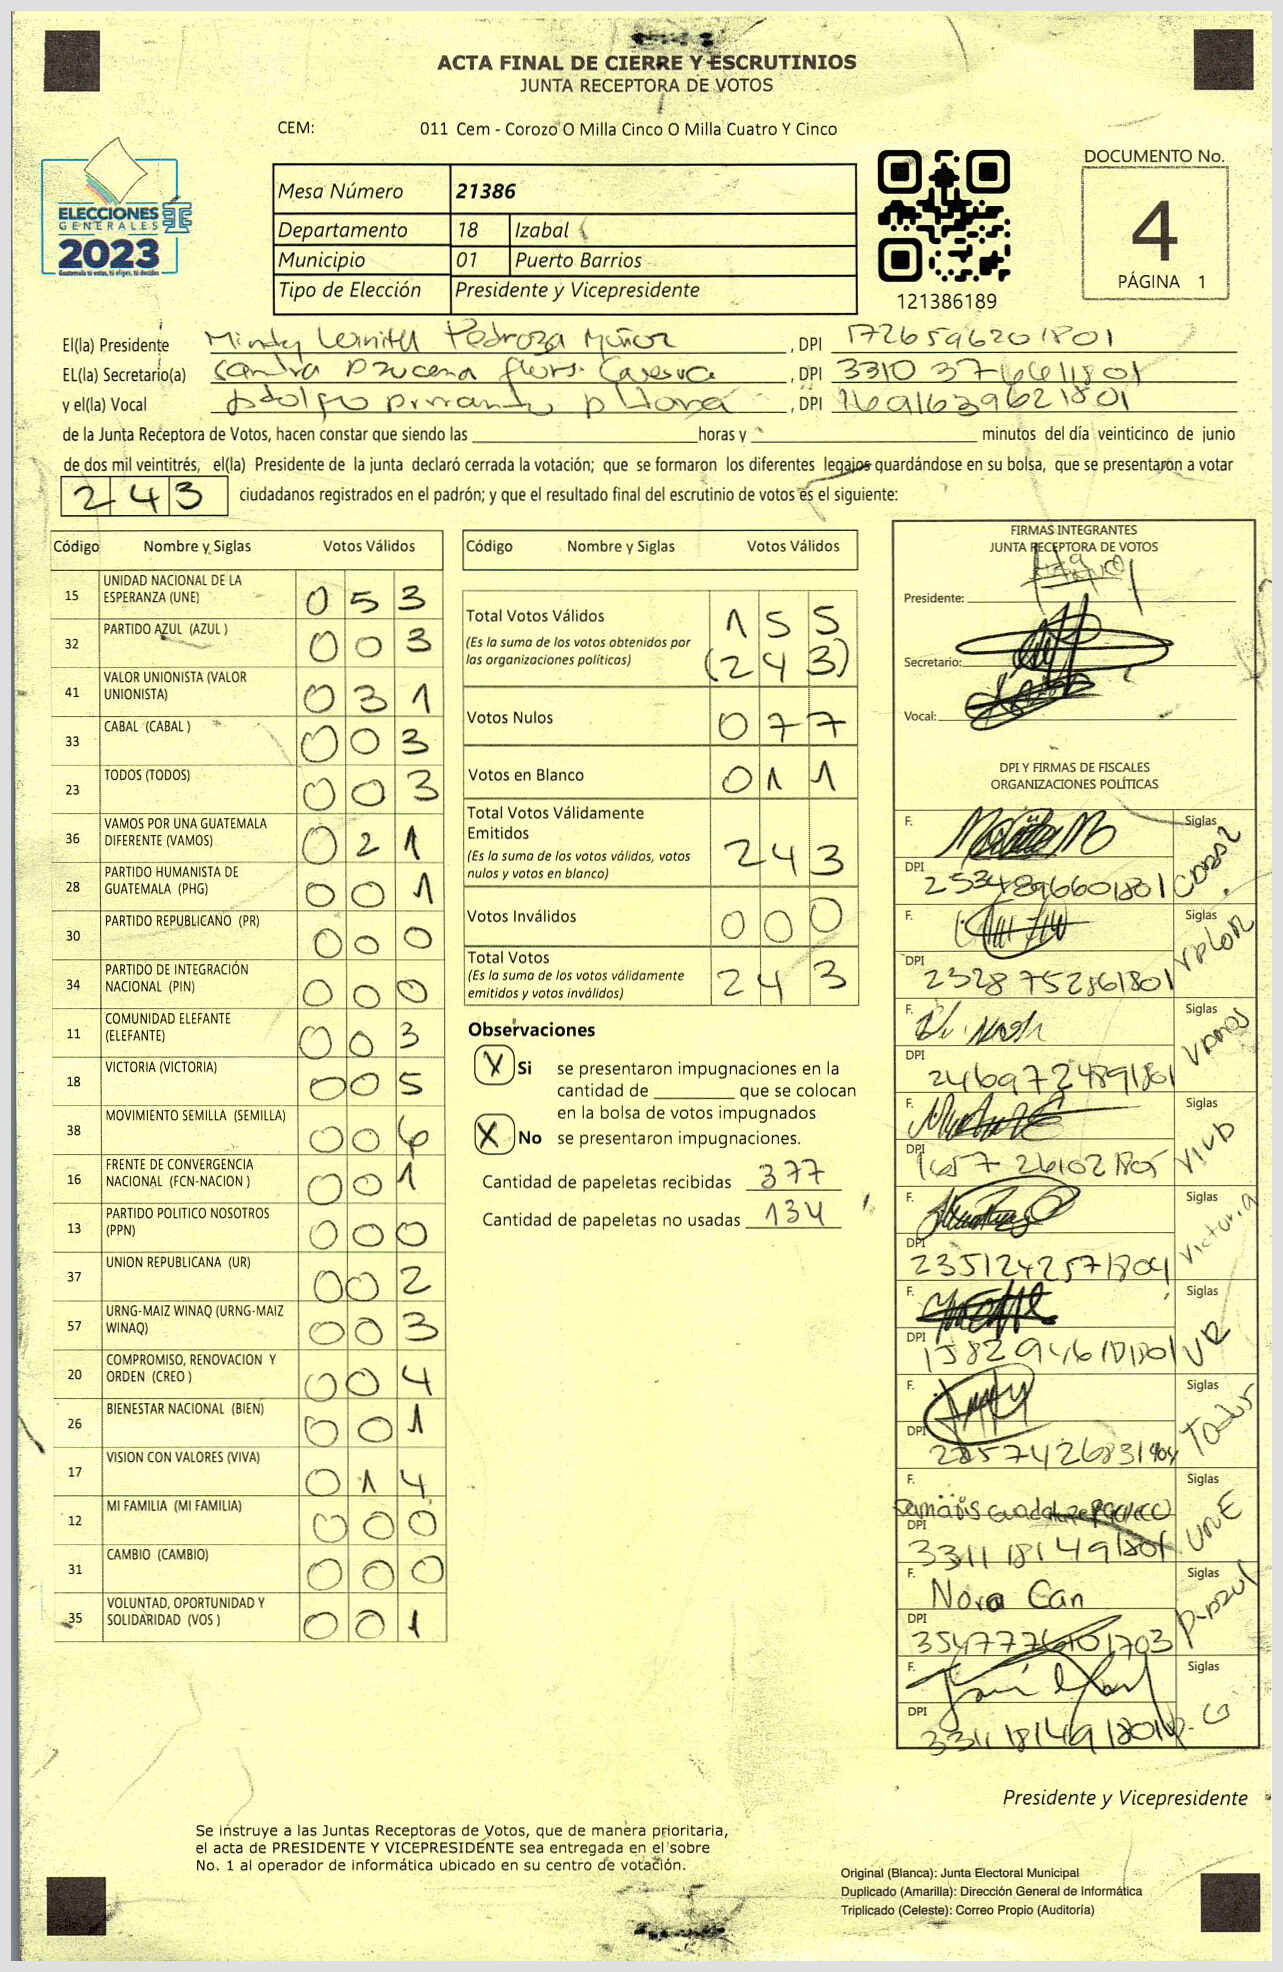 ACTA FINAL DE CIERRE Y ESCRUTINIOS
JUNTA RECEPTORA DE VOTOS
CEM: 011 Cem - Corozo O Milla Cinco O Milla Cuatro Y Cinco
ELECCIONES
GENERALES
2023
Mesa Número 21386
Departamento 18 Izabal
Municipio 01 Puerto Barrios
Tipo de Elección Presidente y Vicepresidente
121386189
DOCUMENTO No.
4
PÁGINA 1
El(la) Presidente Mindy Pedroza Muñoz, DPI 1726596201801
EL(la) Secretario(a) Sandra, DPI 3310376611801
y el(la) Vocal, DPI 1691639621801
de la Junta Receptora de Votos, hacen constar que siendo las horas y minutos del día veinticinco de junio
de dos mil veintitrés, el(la) Presidente de la junta declaró cerrada la votación; que se formaron los diferentes legajos guardándose en su bolsa, que se presentaron a votar
243 ciudadanos registrados en el padrón; y que el resultado final del escrutinio de votos es el siguiente:
Código Nombre y Siglas Votos Válidos
15 UNIDAD NACIONAL DE LA ESPERANZA (UNE) 053
32 PARTIDO AZUL (AZUL ) 003
41 VALOR UNIONISTA (VALOR UNIONISTA) 031
33 CABAL (CABAL ) 003
23 TODOS (TODOS) 003
36 VAMOS POR UNA GUATEMALA DIFERENTE (VAMOS) 021
28 PARTIDO HUMANISTA DE GUATEMALA (PHG) 001
30 PARTIDO REPUBLICANO (PR) 000
34 PARTIDO DE INTEGRACIÓN NACIONAL (PIN) 000
11 COMUNIDAD ELEFANTE (ELEFANTE) 003
18 VICTORIA (VICTORIA) 005
38 MOVIMIENTO SEMILLA (SEMILLA) 006
16 FRENTE DE CONVERGENCIA NACIONAL (FCN-NACION ) 001
13 PARTIDO POLITICO NOSOTROS (PPN) 000
37 UNION REPUBLICANA (UR) 002
57 URNG-MAIZ WINAQ (URNG-MAIZ WINAQ) 003
20 COMPROMISO, RENOVACION Y ORDEN (CREO ) 004
26 BIENESTAR NACIONAL (BIEN) 001
17 VISION CON VALORES (VIVA) 014
12 MI FAMILIA (MI FAMILIA) 000
31 CAMBIO (CAMBIO) 000
35 VOLUNTAD, OPORTUNIDAD Y SOLIDARIDAD (VOS ) 001
Código Nombre y Siglas Votos Válidos
Total Votos Válidos 155
(Es la suma de los votos obtenidos por las organizaciones políticas) (243)
Votos Nulos 077
Votos en Blanco 011
Total Votos Válidamente Emitidos 243
(Es la suma de los votos válidos, votos nulos y votos en blanco)
Votos Inválidos 000
Total Votos 243
(Es la suma de los votos válidamente emitidos y votos inválidos)
Observaciones
X Si se presentaron impugnaciones en la
cantidad de que se colocan
en la bolsa de votos impugnados
X No se presentaron impugnaciones.
Cantidad de papeletas recibidas 377
Cantidad de papeletas no usadas 134
FIRMAS INTEGRANTES
JUNTA RECEPTORA DE VOTOS
Presidente:
Secretario:
Vocal:
DPI Y FIRMAS DE FISCALES
ORGANIZACIONES POLÍTICAS
F. Siglas
DPI 2534896601801
F. Siglas
DPI 2328752861801 Valor
F. Siglas
DPI 2469724891801 Vamos
F. Siglas
DPI 1657261021805 VIVA
F. Siglas
DPI 2351242571804 Victoria
F. Siglas
DPI UR
F. Siglas
DPI Todos
F. Damaris Guadalupe Siglas
DPI 3311181491801 UNE
F. Nora Can Siglas
DPI 3547776101703 P. Azul
F. Siglas
DPI
Presidente y Vicepresidente
Se instruye a las Juntas Receptoras de Votos, que de manera prioritaria,
el acta de PRESIDENTE Y VICEPRESIDENTE sea entregada en el sobre
No. 1 al operador de informática ubicado en su centro de votación.
Original (Blanca): Junta Electoral Municipal
Duplicado (Amarilla): Dirección General de Informática
Triplicado (Celeste): Correo Propio (Auditoría)